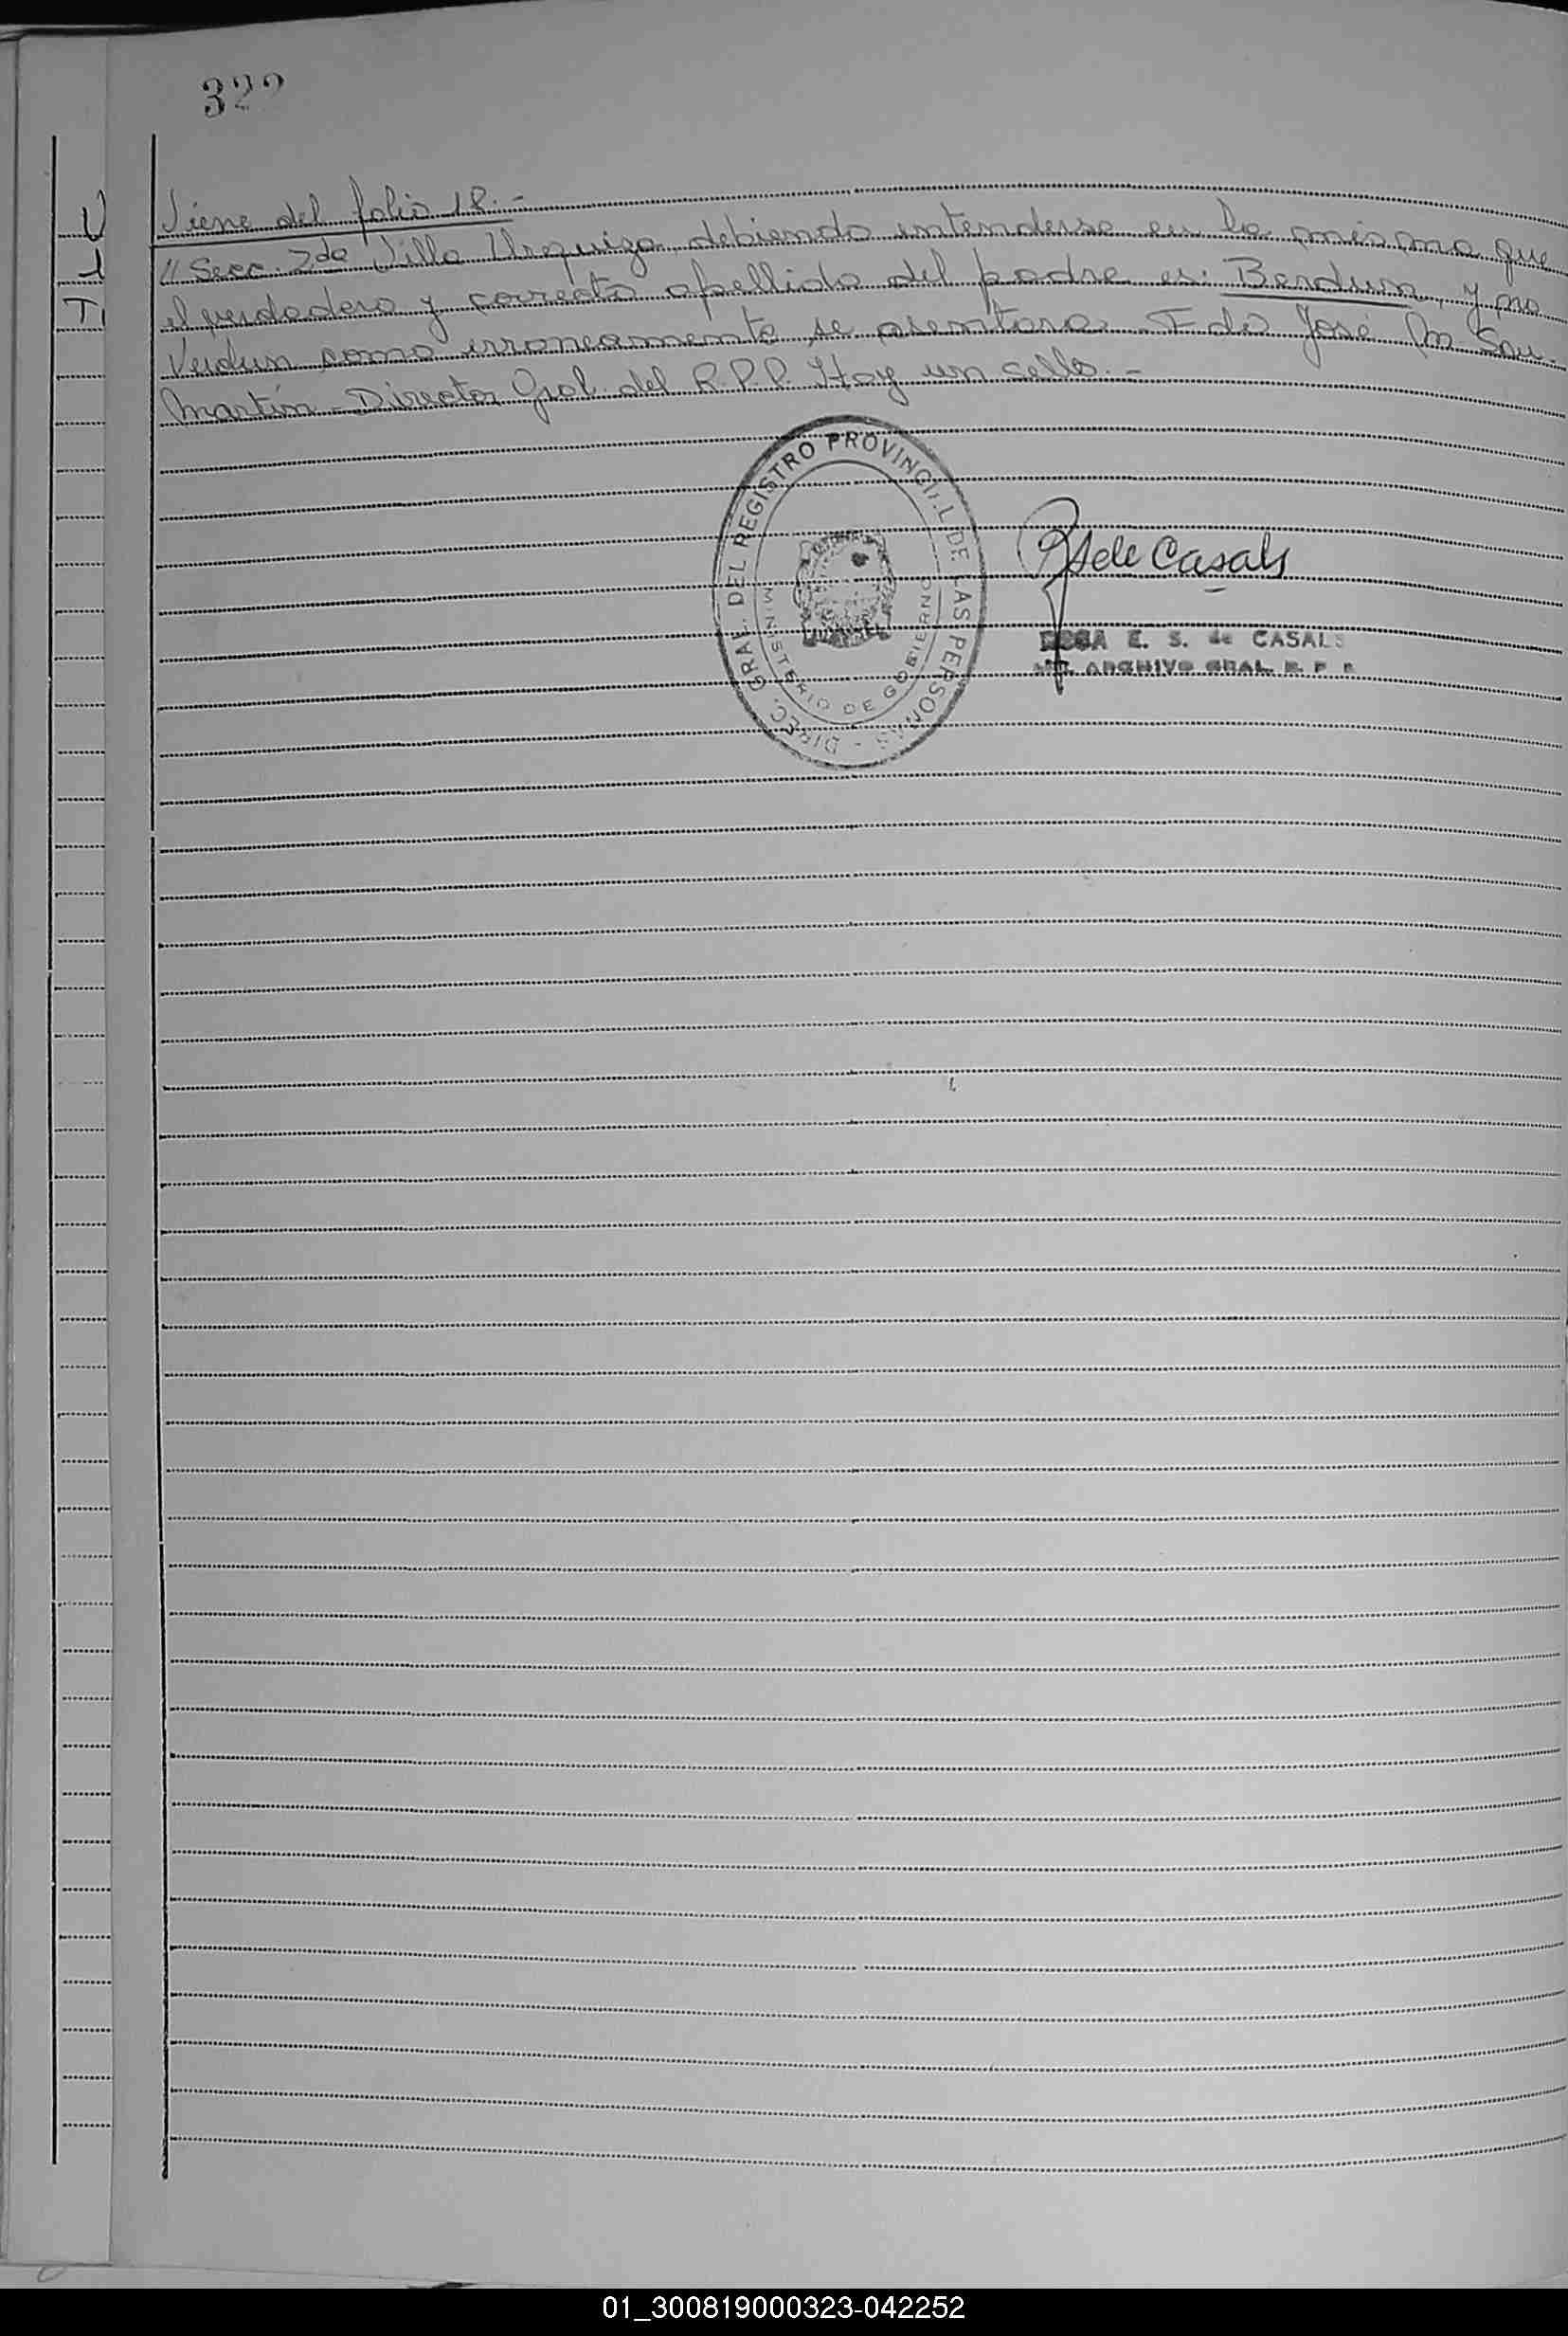 322
Viene del folio 18.-
// Secc. 2da Villa Urquiza, debiendo entenderse en la misma que
el verdadero y correcto apellido del padre es: Berdun, y no
Verdun como erroneamente se asentara. Fdo José M. San
Martín - Director Gral. del R.P.P. Hay un sello.-
DIREC. GRAL. DEL REGISTRO PROVINCIAL DE LAS PERSONAS -
MINISTERIO DE GOBIERNO
R S de Casals
ROSA E. S. de CASALS
ARCHIVO GRAL. R. P. P.
01_300819000323-042252